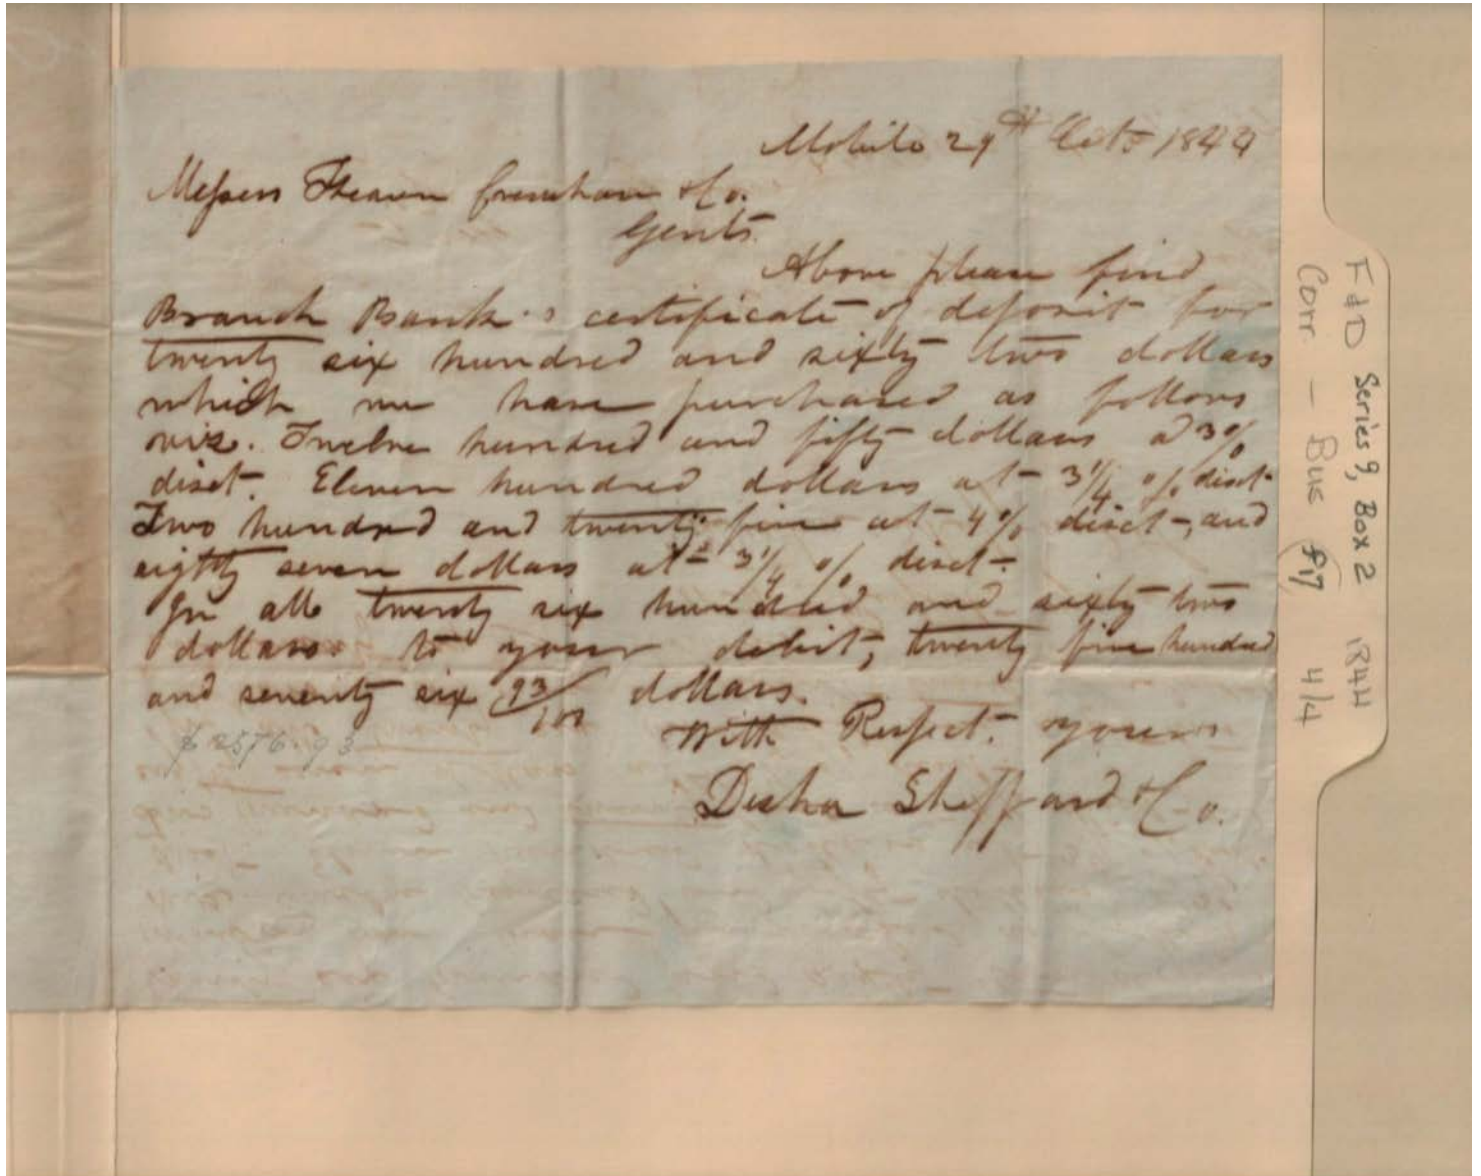 Mobile 29th Octo 1844
Messrs Thearon Crenshaw & Co.
Gents.
Above please find
Branch Bank's certificate of deposit for
twenty six hundred and sixty two dollars
which we have purchased as follows
viz. Twelve hundred and fifty dollars a 3%
disct. Eleven hundred dollars at 3 1/4 % disct
Two hundred and twenty five at 4% disct, and
eighty seven dollars at 3 1/4 % disct.
In all twenty six hundred and sixty two
dollars to your debit, twenty five hundred
and seventy six 93/100 dollars.
$2576.93
With Respect. yours
Desha Sheppard & Co.
F&D Series 9, Box 2 1844
Corr - Bus f17 4/4